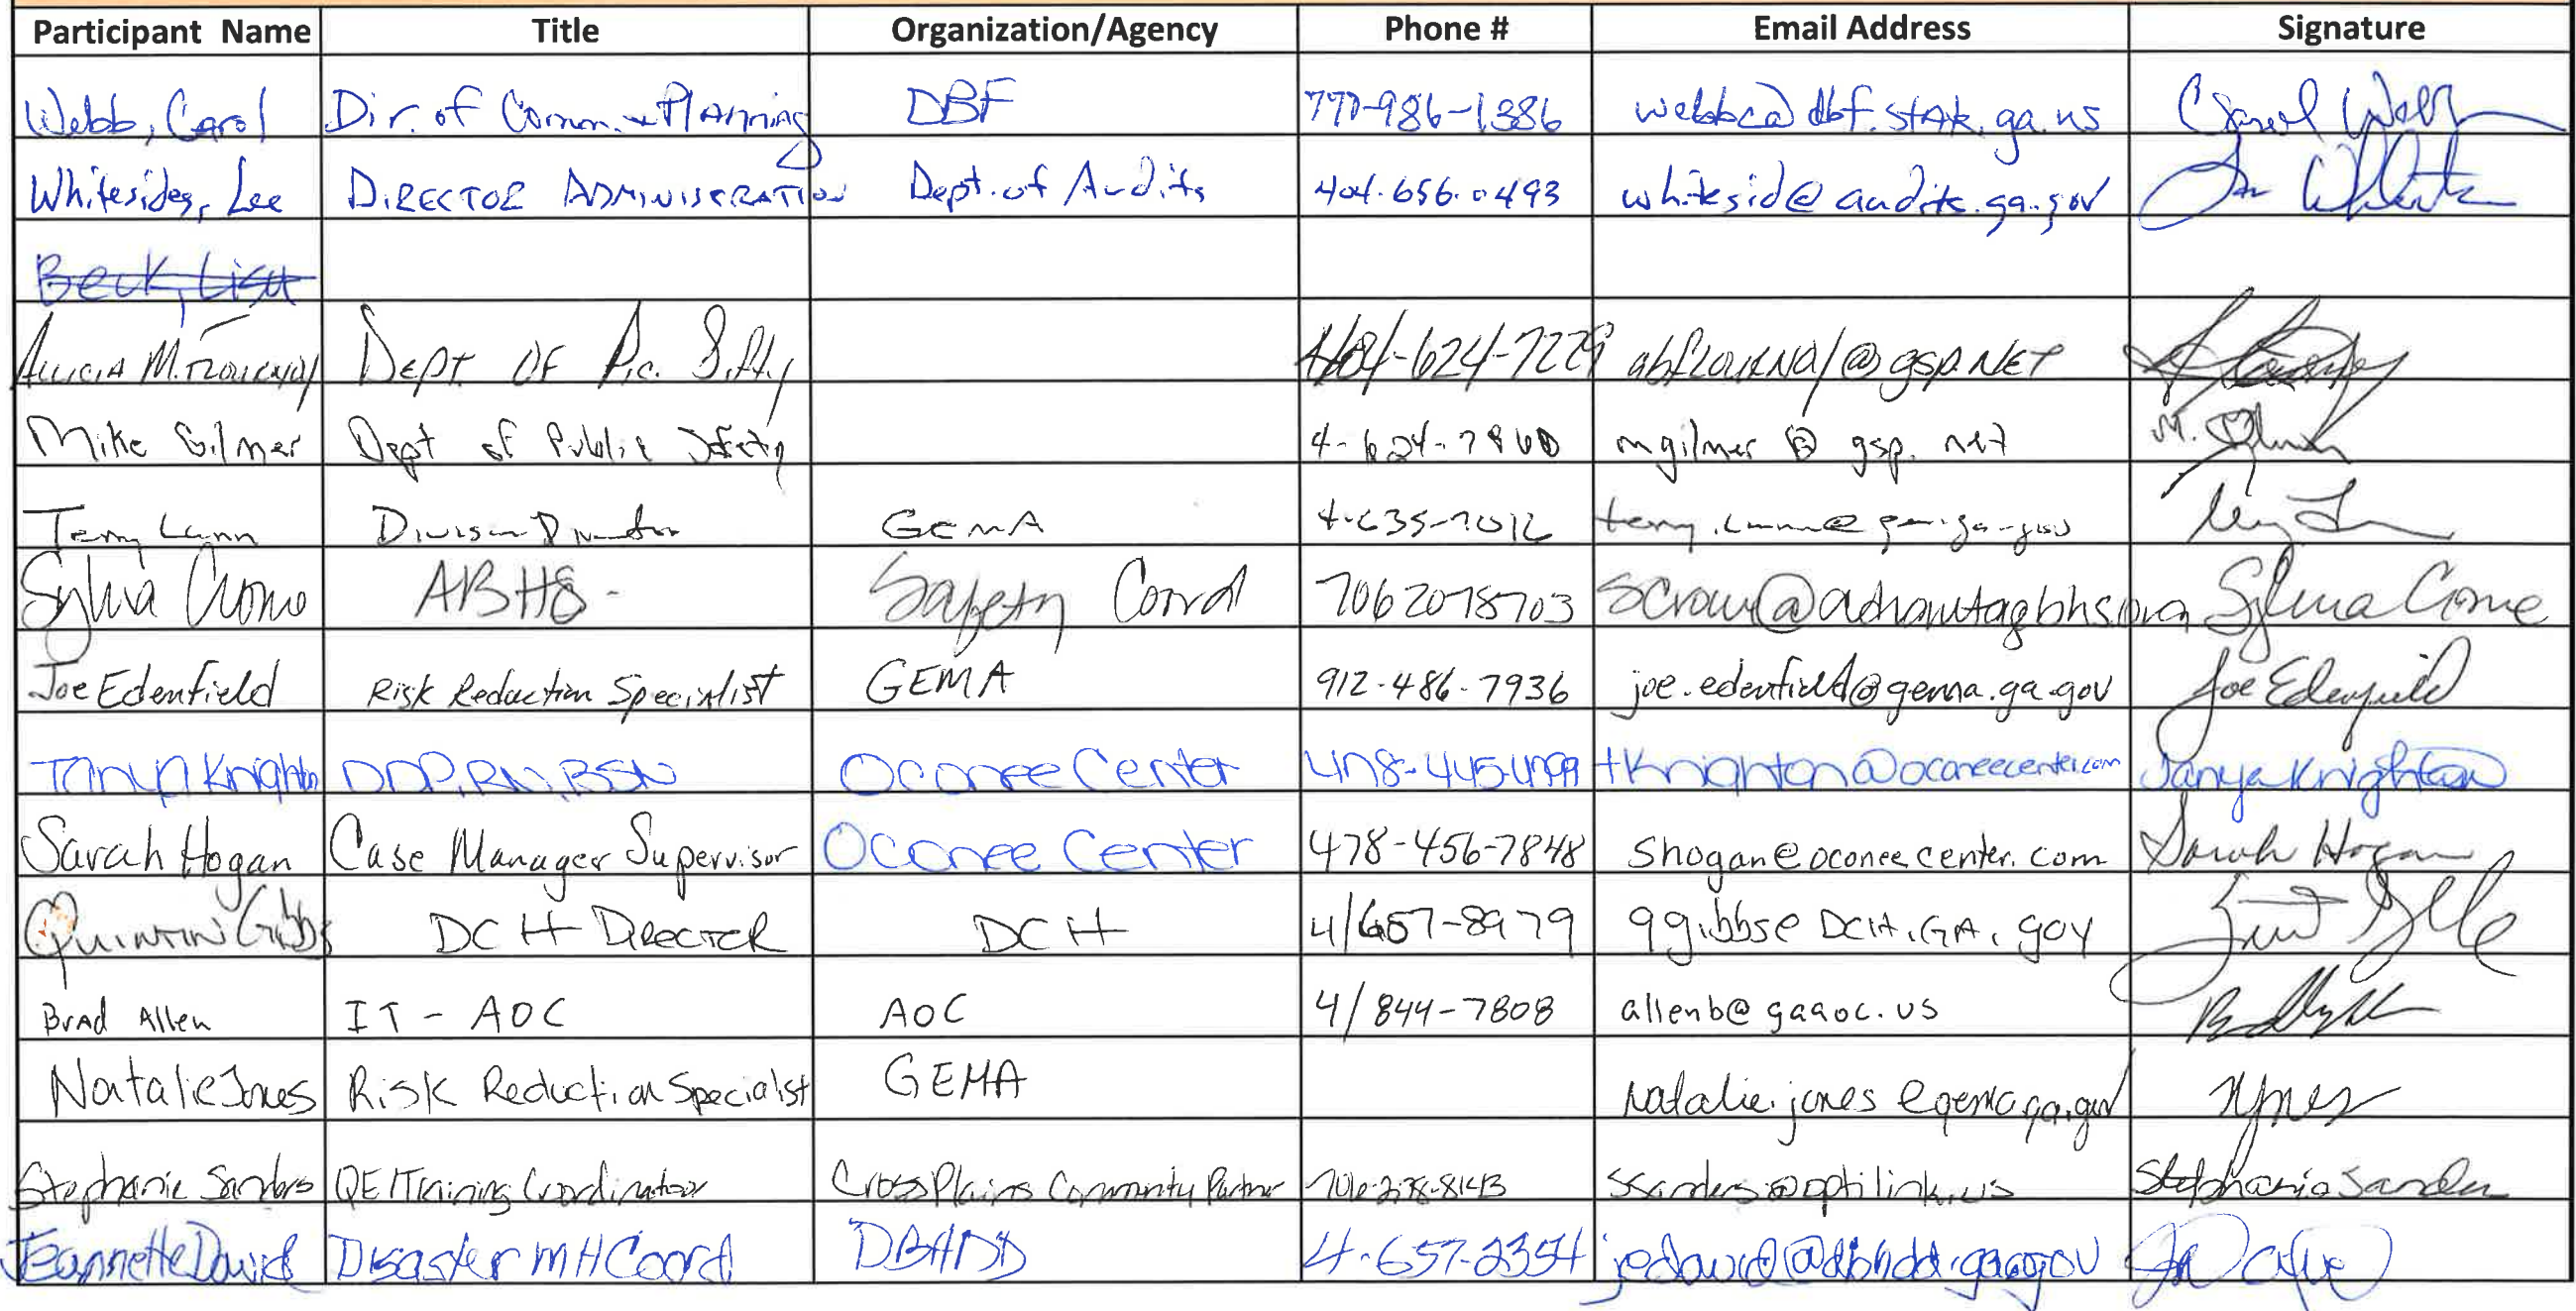 Participant Name Title Organization/Agency Phone # Email Address Signature
Webb, Carol Dir. of Comm. + Planning DBF 770-986-1386 webbca@dbf.state.ga.us Carol Webb
Whitesides, Lee DIRECTOR ADMINISTRATION Dept. of Audits 404.656.0493 whitesid@audits.ga.gov
Beck, Lisa
Alicia M. Dept. OF 404-624-7229 @gsp.NET
Mike Gilmer Dept of Public Safety 4-624-7860 mgilmer @ gsp. net M. Gilmer
Terry Lunn Division Director GEMA 4-635-7016
Sylvia Crowe ABHS - Safety Coord 7062078703 Sylvia Crowe
Joe Edenfield Risk Reduction Specialist GEMA 912-486-7936 joe.edenfield@gema.ga.gov Joe Edenfield
Tanya Knighton DDP, RN, BSN Oconee Center tknighton@oconeecenter.com Tanya Knighton
Sarah Hogan Case Manager Supervisor Oconee Center 478-456-7848 shogan@oconeecenter.com Sarah Hogan
Quintin Gibbs DCH DIRECTOR DCH 4/657-8979 qgibbs@DCH.GA.gov
Brad Allen IT - AOC AOC 4/844-7808 allenb@gaaoc.us
Natalie Jones Risk Reduction Specialist GEMA natalie.jones@gema.ga.gov NJones
Stephanie Sanders QE/Training Coordinator CrossPlains Community Partner 706-278-8143 ssanders@optilink.us Stephanie Sanders
Jeannette David Disaster MH Coord DBHDD 4-657-2354 jedavid@dbhdd.ga.gov